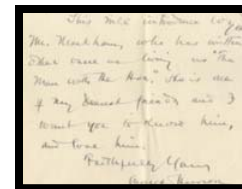 This will introduce to you
Mr. Markham, who has written
"The
Man with the Hoe." He is one
of my dearest friends and I
want you to know him,
and love him.
Faithfully Yours